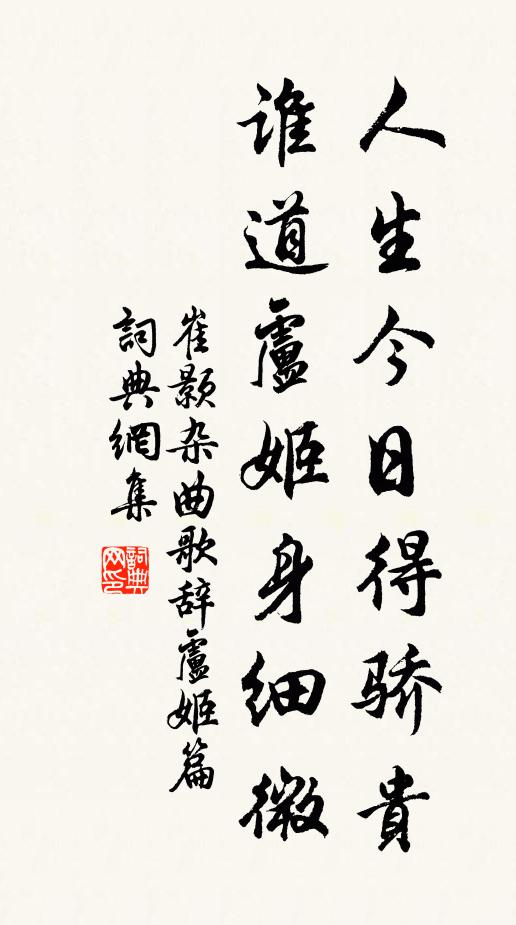 人生今日得骄貴
谁道盧姬身细微
崔颢杂曲歌辞盧姬篇
詞典網集
詞典网印